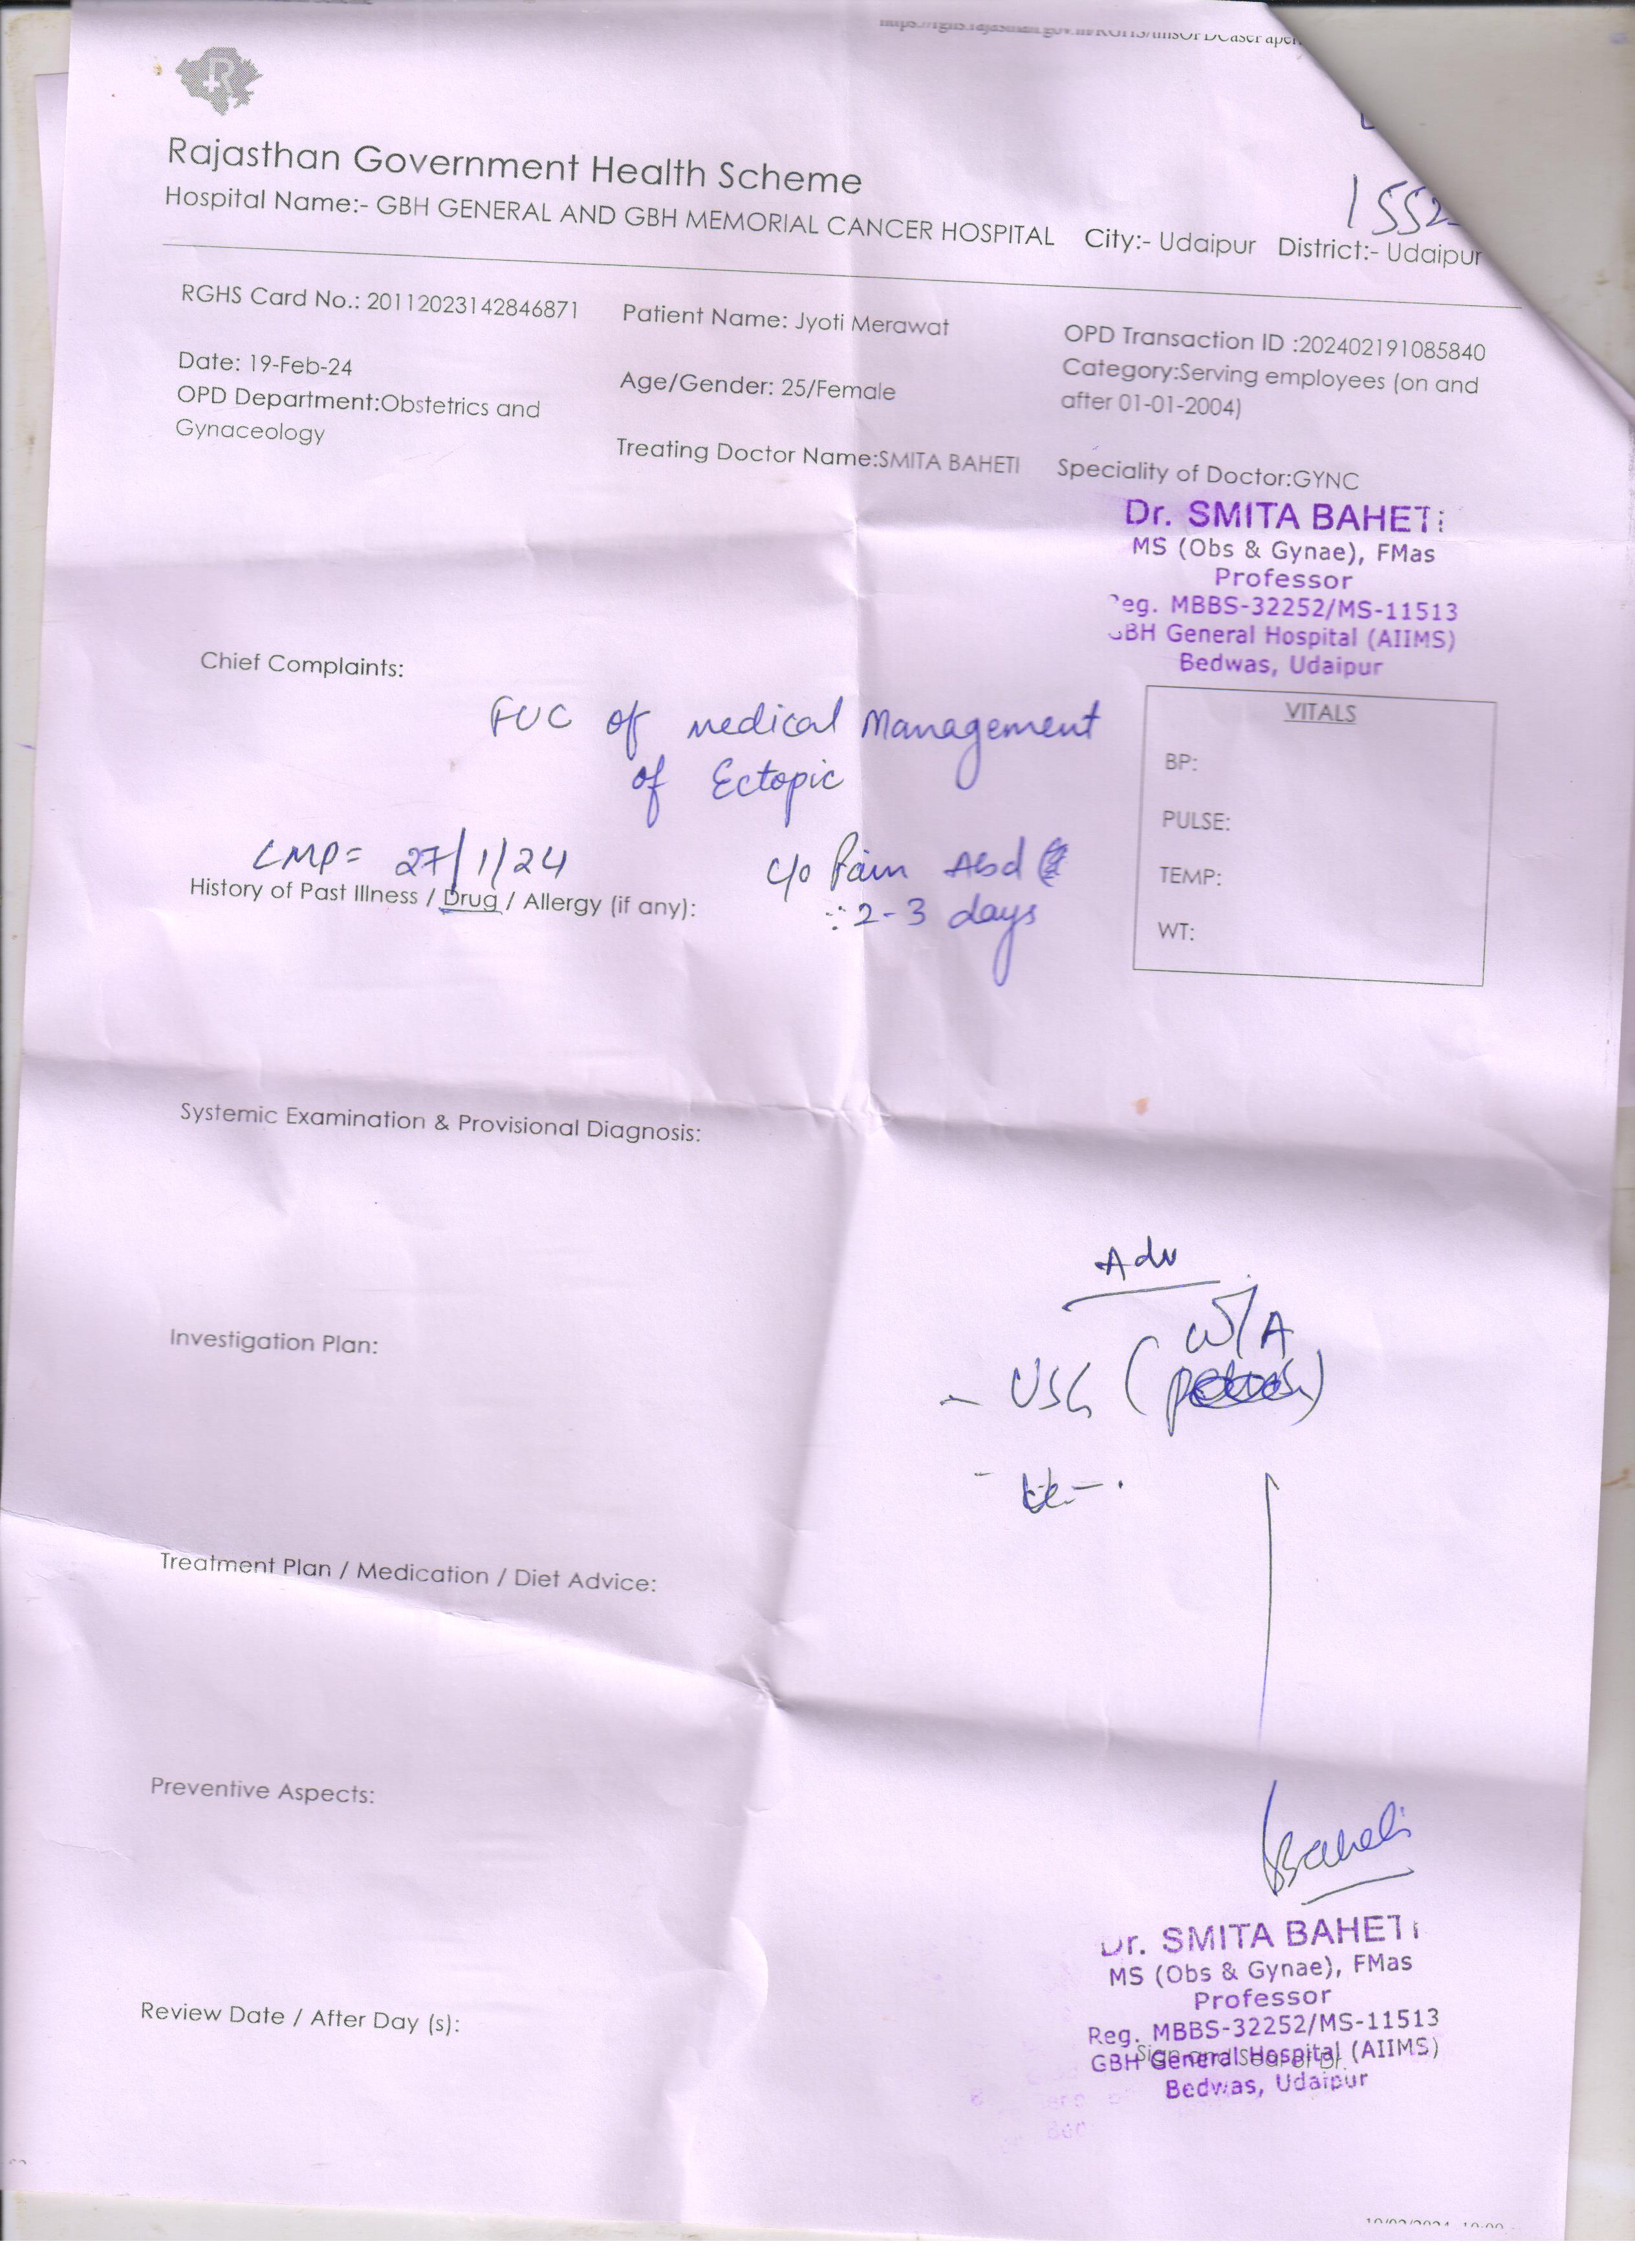 Rajasthan Government Health Scheme
Hospital Name:- GBH GENERAL AND GBH MEMORIAL CANCER HOSPITAL City:- Udaipur District:- Udaipur
RGHS Card No.: 20112023142846871
Patient Name: Jyoti Merawat
OPD Transaction ID :202402191085840
Date: 19-Feb-24
Age/Gender: 25/Female
Category:Serving employees (on and
after 01-01-2004)
OPD Department:Obstetrics and
Gynaceology
Treating Doctor Name:SMITA BAHETI
Speciality of Doctor:GYNC
Dr. SMITA BAHETI
MS (Obs & Gynae), FMas
Professor
Reg. MBBS-32252/MS-11513
GBH General Hospital (AIIMS)
Bedwas, Udaipur
Chief Complaints:
FUC of medical Management
of Ectopic
VITALS
BP:
PULSE:
TEMP:
WT:
LMP= 27/1/24
c/o Pain Abd
2-3 days
History of Past Illness / Drug / Allergy (if any):
Systemic Examination & Provisional Diagnosis:
Adv
Investigation Plan:
W/A
- USG (
Treatment Plan / Medication / Diet Advice:
Preventive Aspects:
Baheti
Dr. SMITA BAHETI
MS (Obs & Gynae), FMas
Professor
Reg. MBBS-32252/MS-11513
GBH General Hospital (AIIMS)
Bedwas, Udaipur
Review Date / After Day (s):
Sign and Seal of Dr.